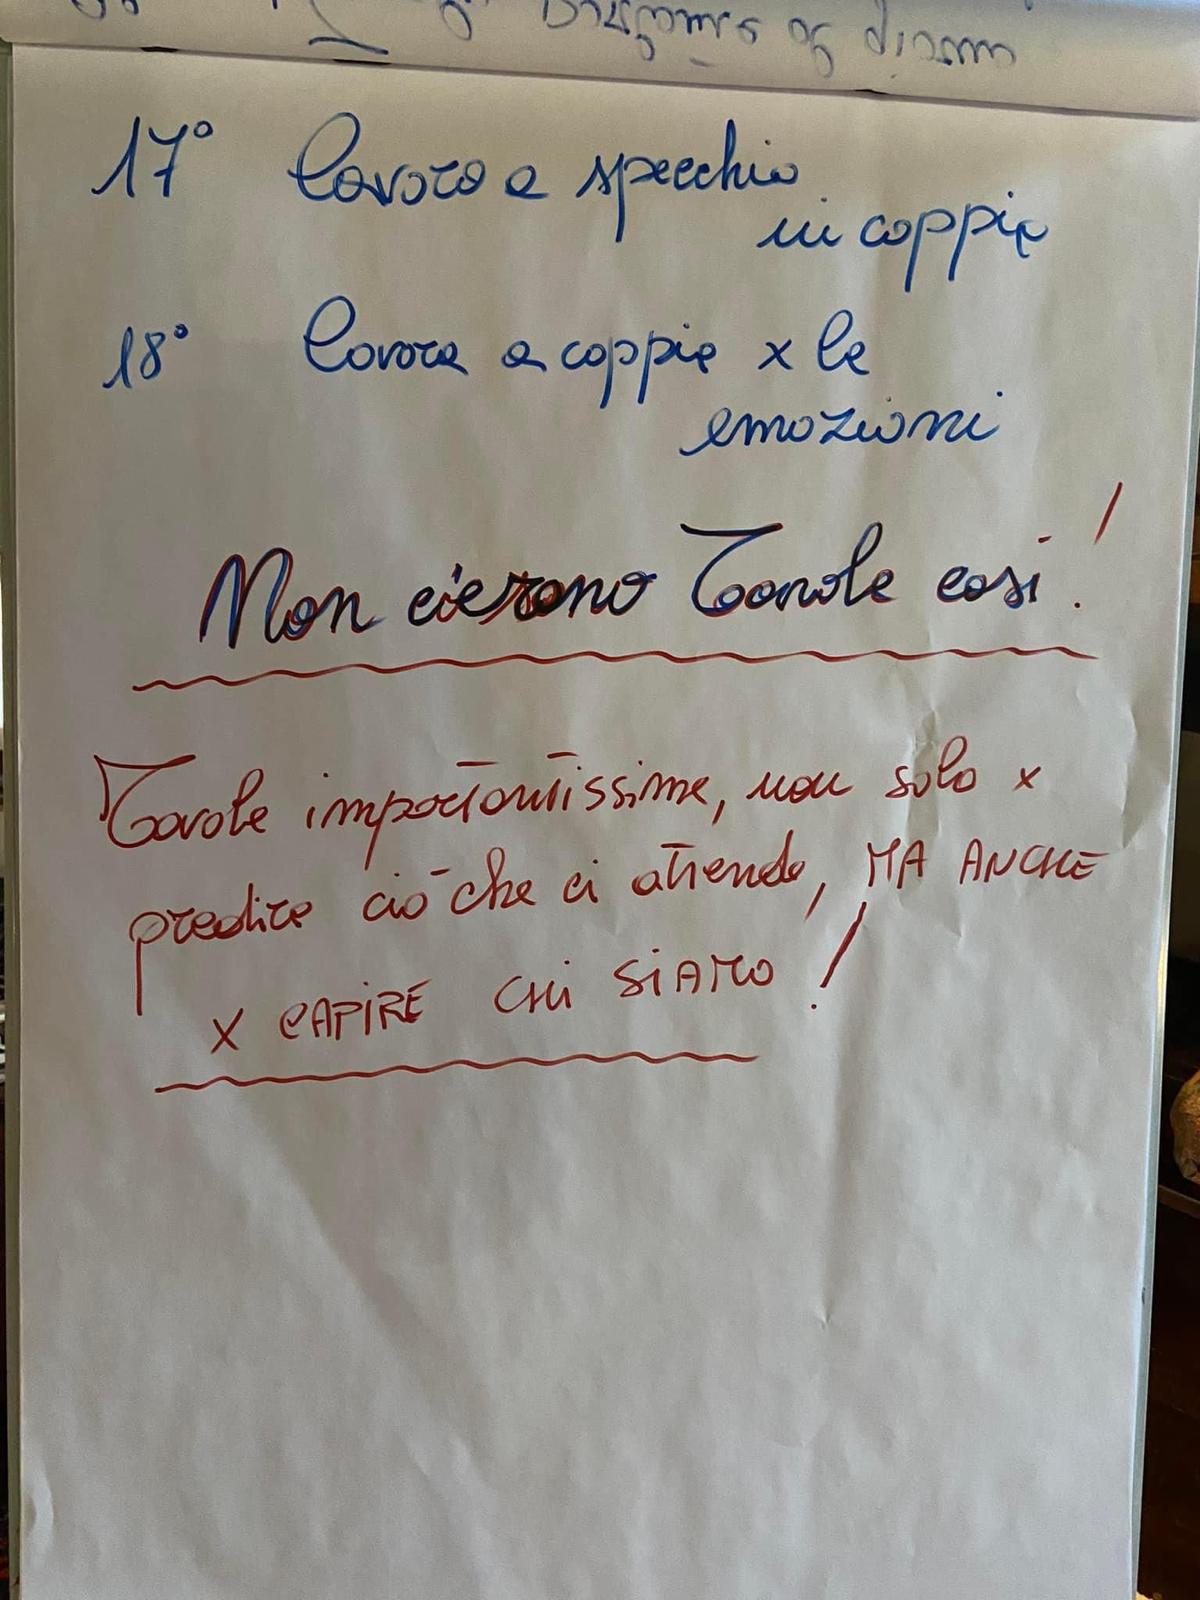 17° Lavoro a specchio
in coppie
18° Lavoro a coppie x le
emozioni
Non c'erano Tavole così!
Tavole importantissime, non solo x
predire ciò che ci attende, MA ANCHE
X CAPIRE CHI SIAMO!